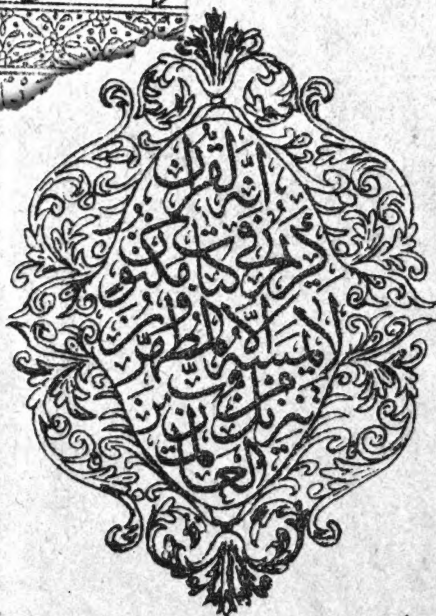 إنّه لقرآن
كريم في كتاب مكنون
لا يمسّه إلّا المطهّرون
تنزيل من ربّ
العالمين